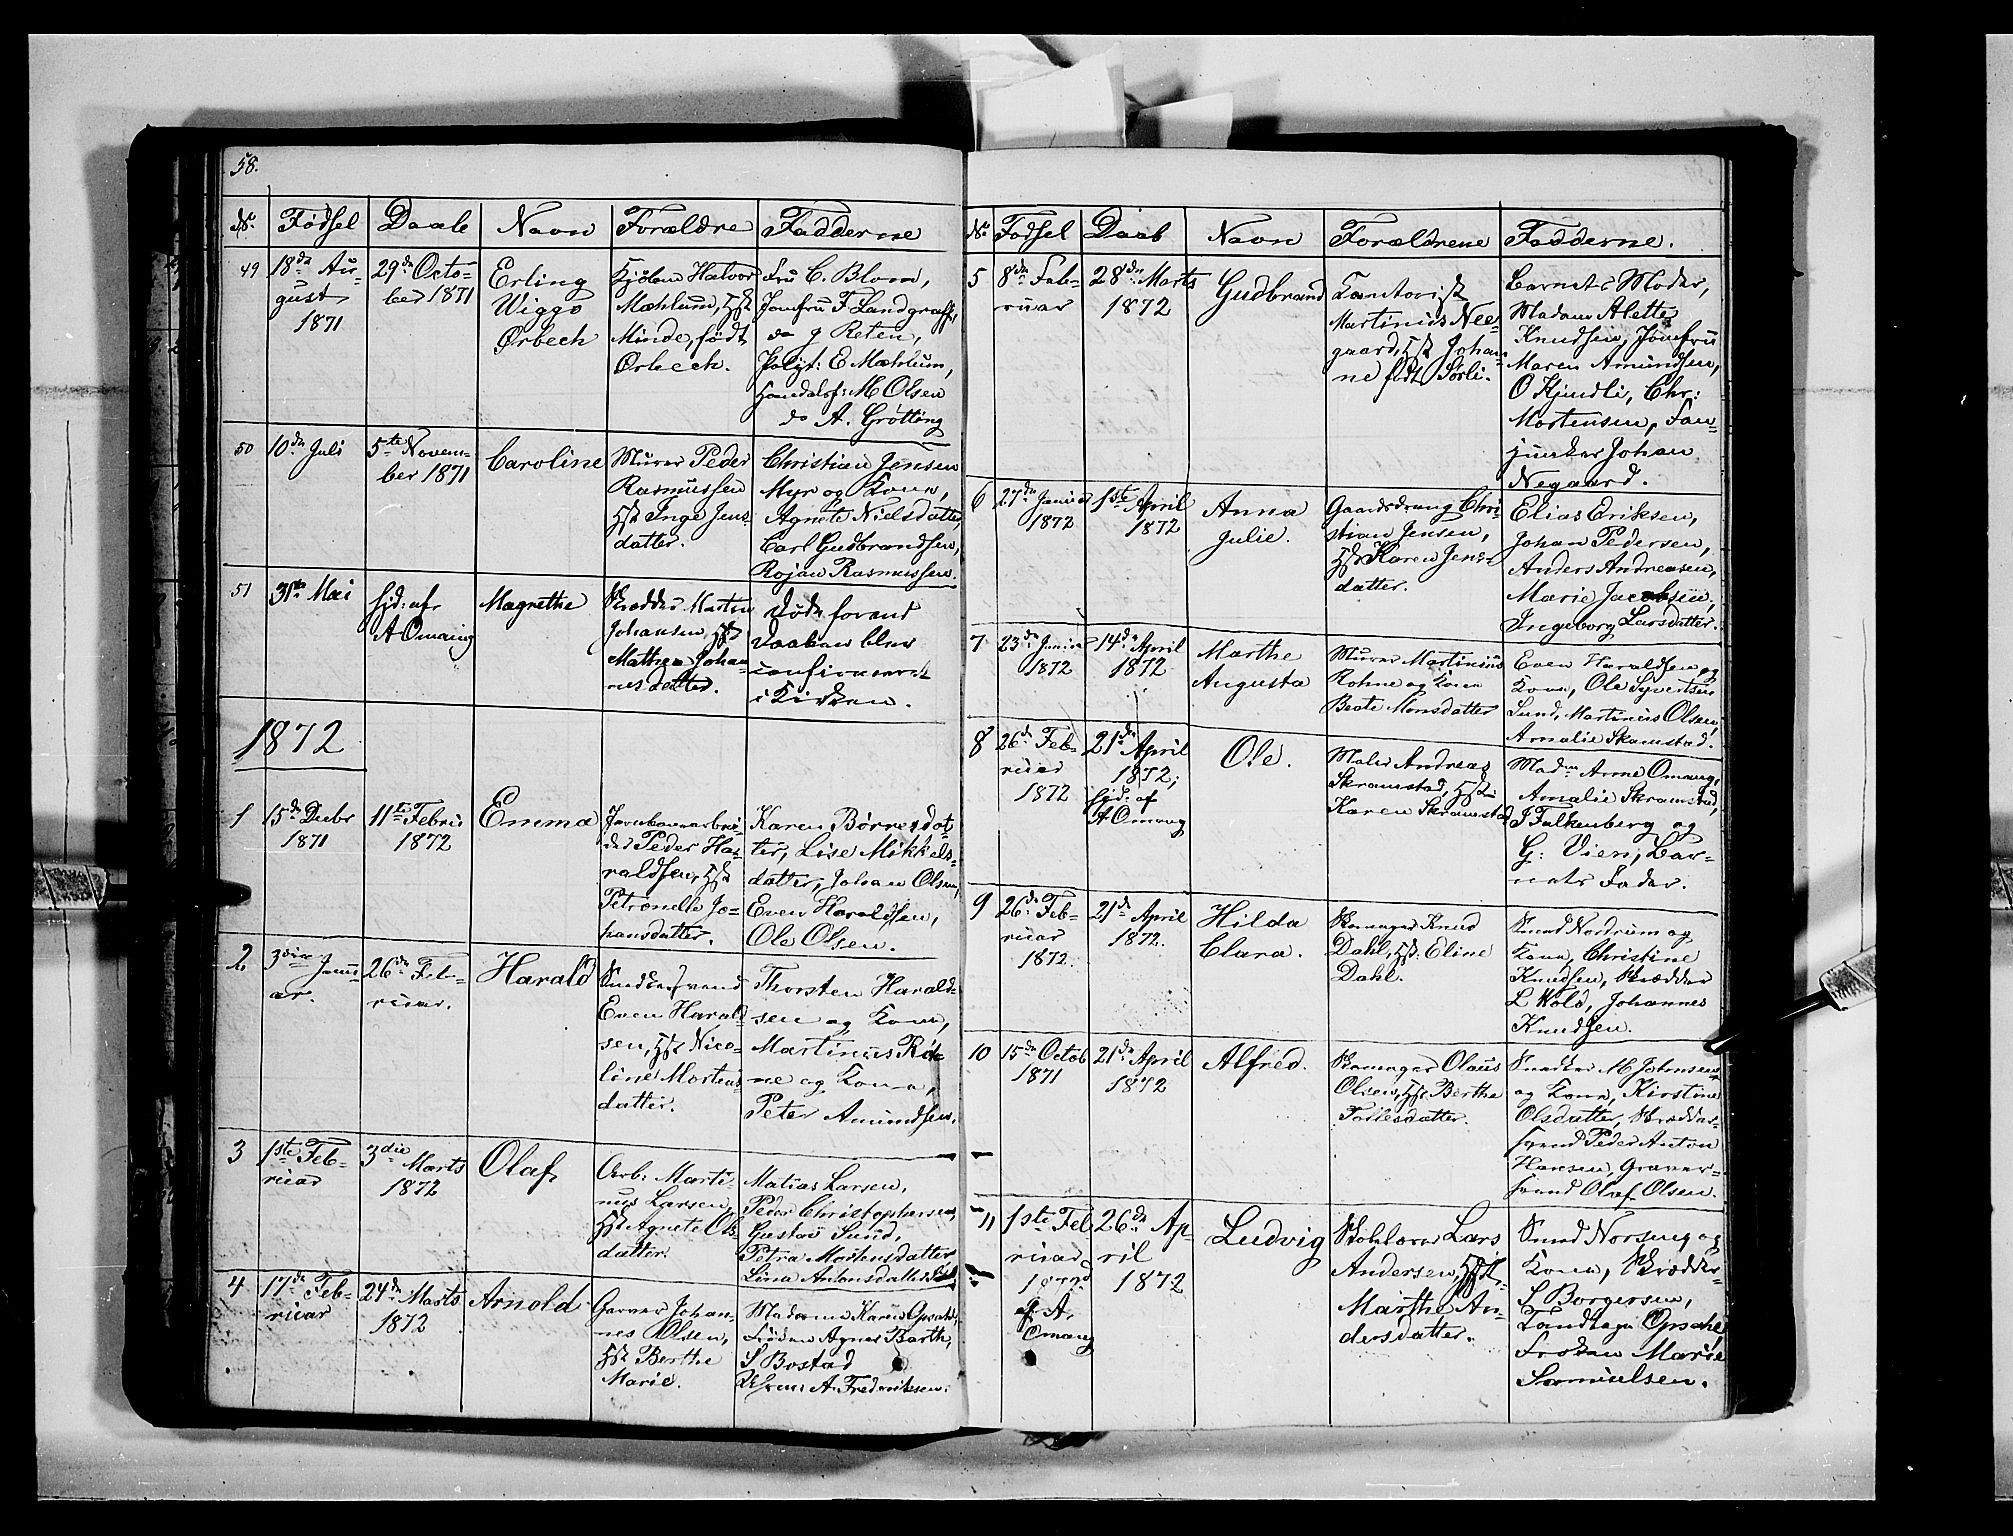 58.
No. Fødsel Daab Navn Forældre Fadderne
49 18de Au-
gust
1871
29de Octo-
ber 1871
Erling
Wiggo
Ørbech
Halvor
Mæhlum, Hst
Minde, født
Ørbech.
Fru C. Blom,
Jomfru F Landgraff,
do J Reten,
E Mæhlum,
Handelsf: M Olsen
do A. Grötting
50 10de Juli
5te Novem-
ber 1871
Caroline
Murer Peder
Rasmussen
Hst Inge Jens-
datter.
Christian Jensen
Myr og Kone,
Agnete Nielsdatter,
Carl Gudbrandsen,
Rojan Rasmussen.
51 31te Mai
hjd: af
A Omang
Magrethe
Skrædder Martin
Johansen, Hst
Mathea Johan-
nesdatter.
Døde forend
Daaben blev
confirmeret
i Kirken.
1872
1 15de Decbr
1871
11te Febru
1872
Emma
Peder Ha-
raldsen, Hst
Petronelle Jo-
hansdatter.
Karen Børresdat-
ter, Lise Mikkels-
datter, Johan Olsen,
Even Haraldsen,
Ole Olsen.
2 3die Janu-
ar.
26de Feb-
ruar.
Harald
Snedkersvend
Even Harald-
sen, Hst Nico-
line Mortens-
datter.
Thorsten Harald-
sen og Kone,
Martinus Roh-
ne og Kone,
Peter Amundsen.
3 1ste Feb-
ruar
3die Marts
1872
Olaf
Arb: Marti-
nus Larsen,
Hst Agnete Ols-
datter.
Matias Larsen,
Peder Christophersen,
Gustav Sund,
Petra Mortensdatter
Lina Antonsdatter
4 17de Feb-
ruar
24de Marts
1872
Arnold
Garver Johan-
nes Olsen,
Hst Berthe
Marie.
Madame Karen Opsahl,
Frøken Agnes Barth,
S Bostad
A. Frederiksen.
No. Fødsel Daab Navn Forældrene Fadderne.
5 8de Feb-
ruar
28de Marts
1872
Gudbrand
Kontorist
Martinius Nee-
gaard, Hst Johan-
ne født Sørli.
Barnets Moder,
Madam Alette
Knudsen, Jomfru
Maren Amundsen,
O Kjendli, Chr:
Mortensen, Fan-
junker Johan
Negaard.
6 27de Januar
1872
1ste April
1872
Anna
Julie.
Gaardsdreng Chri-
stian Jensen,
Hst Karen Jens-
datter.
Elias Eriksen,
Johan Pedersen,
Anders Andreasen,
Marie Jacobsen,
Ingeborg Larsdatter.
7 23de Januar
1872
14de April
1872
Marthe
Augusta
Murer Martinius
Rohne og Kone
Beate Monsdatter
Even Haraldsen og
Kone, Ole Syvertsen
Sund, Martinus Olsen,
Amalie Skramstad.
8 26de Feb-
ruar
1872
21de April
1872;
hjd: af
A Omang
Ole.
Maler Andreas
Skramstad, Hst
Karen Skramstad
Madm Anne Omang,
Amalie Skramstad,
J Falkenberg og
G: Vien, Bar-
nets Fader.
9 26de Feb-
ruar
1872.
21de April
1872.
Hilda
Clara.
Skomager Knud
Dahl, Hst: Eline
Dahl.
Smed Nordrum og
Kone, Christine
Knudsen, Skrædder
L Wold, Johannes
Knudsen.
10 15de Octob
1871
21de April
1872
Alfred.
Skomager Olaus
Olsen, Hst Berthe
Tollesdatter.
Snedker M Johnsen
og Kone, Kirstine
Olsdatter, Skrædder-
svend Peder Anton
Hansen, Garver-
svend Olaf Olsen.
11 1ste Feb
ruar
1872
af A.
Omang
26de Ap-
ril
1872
Ludvig
Lars
Andersen, Hst
Marthe An-
dersdatter.
Smed Norseng og
Kone, Skrædder
S Borgersen,
Opsahl,
Frøken Marie
Samuelsen.